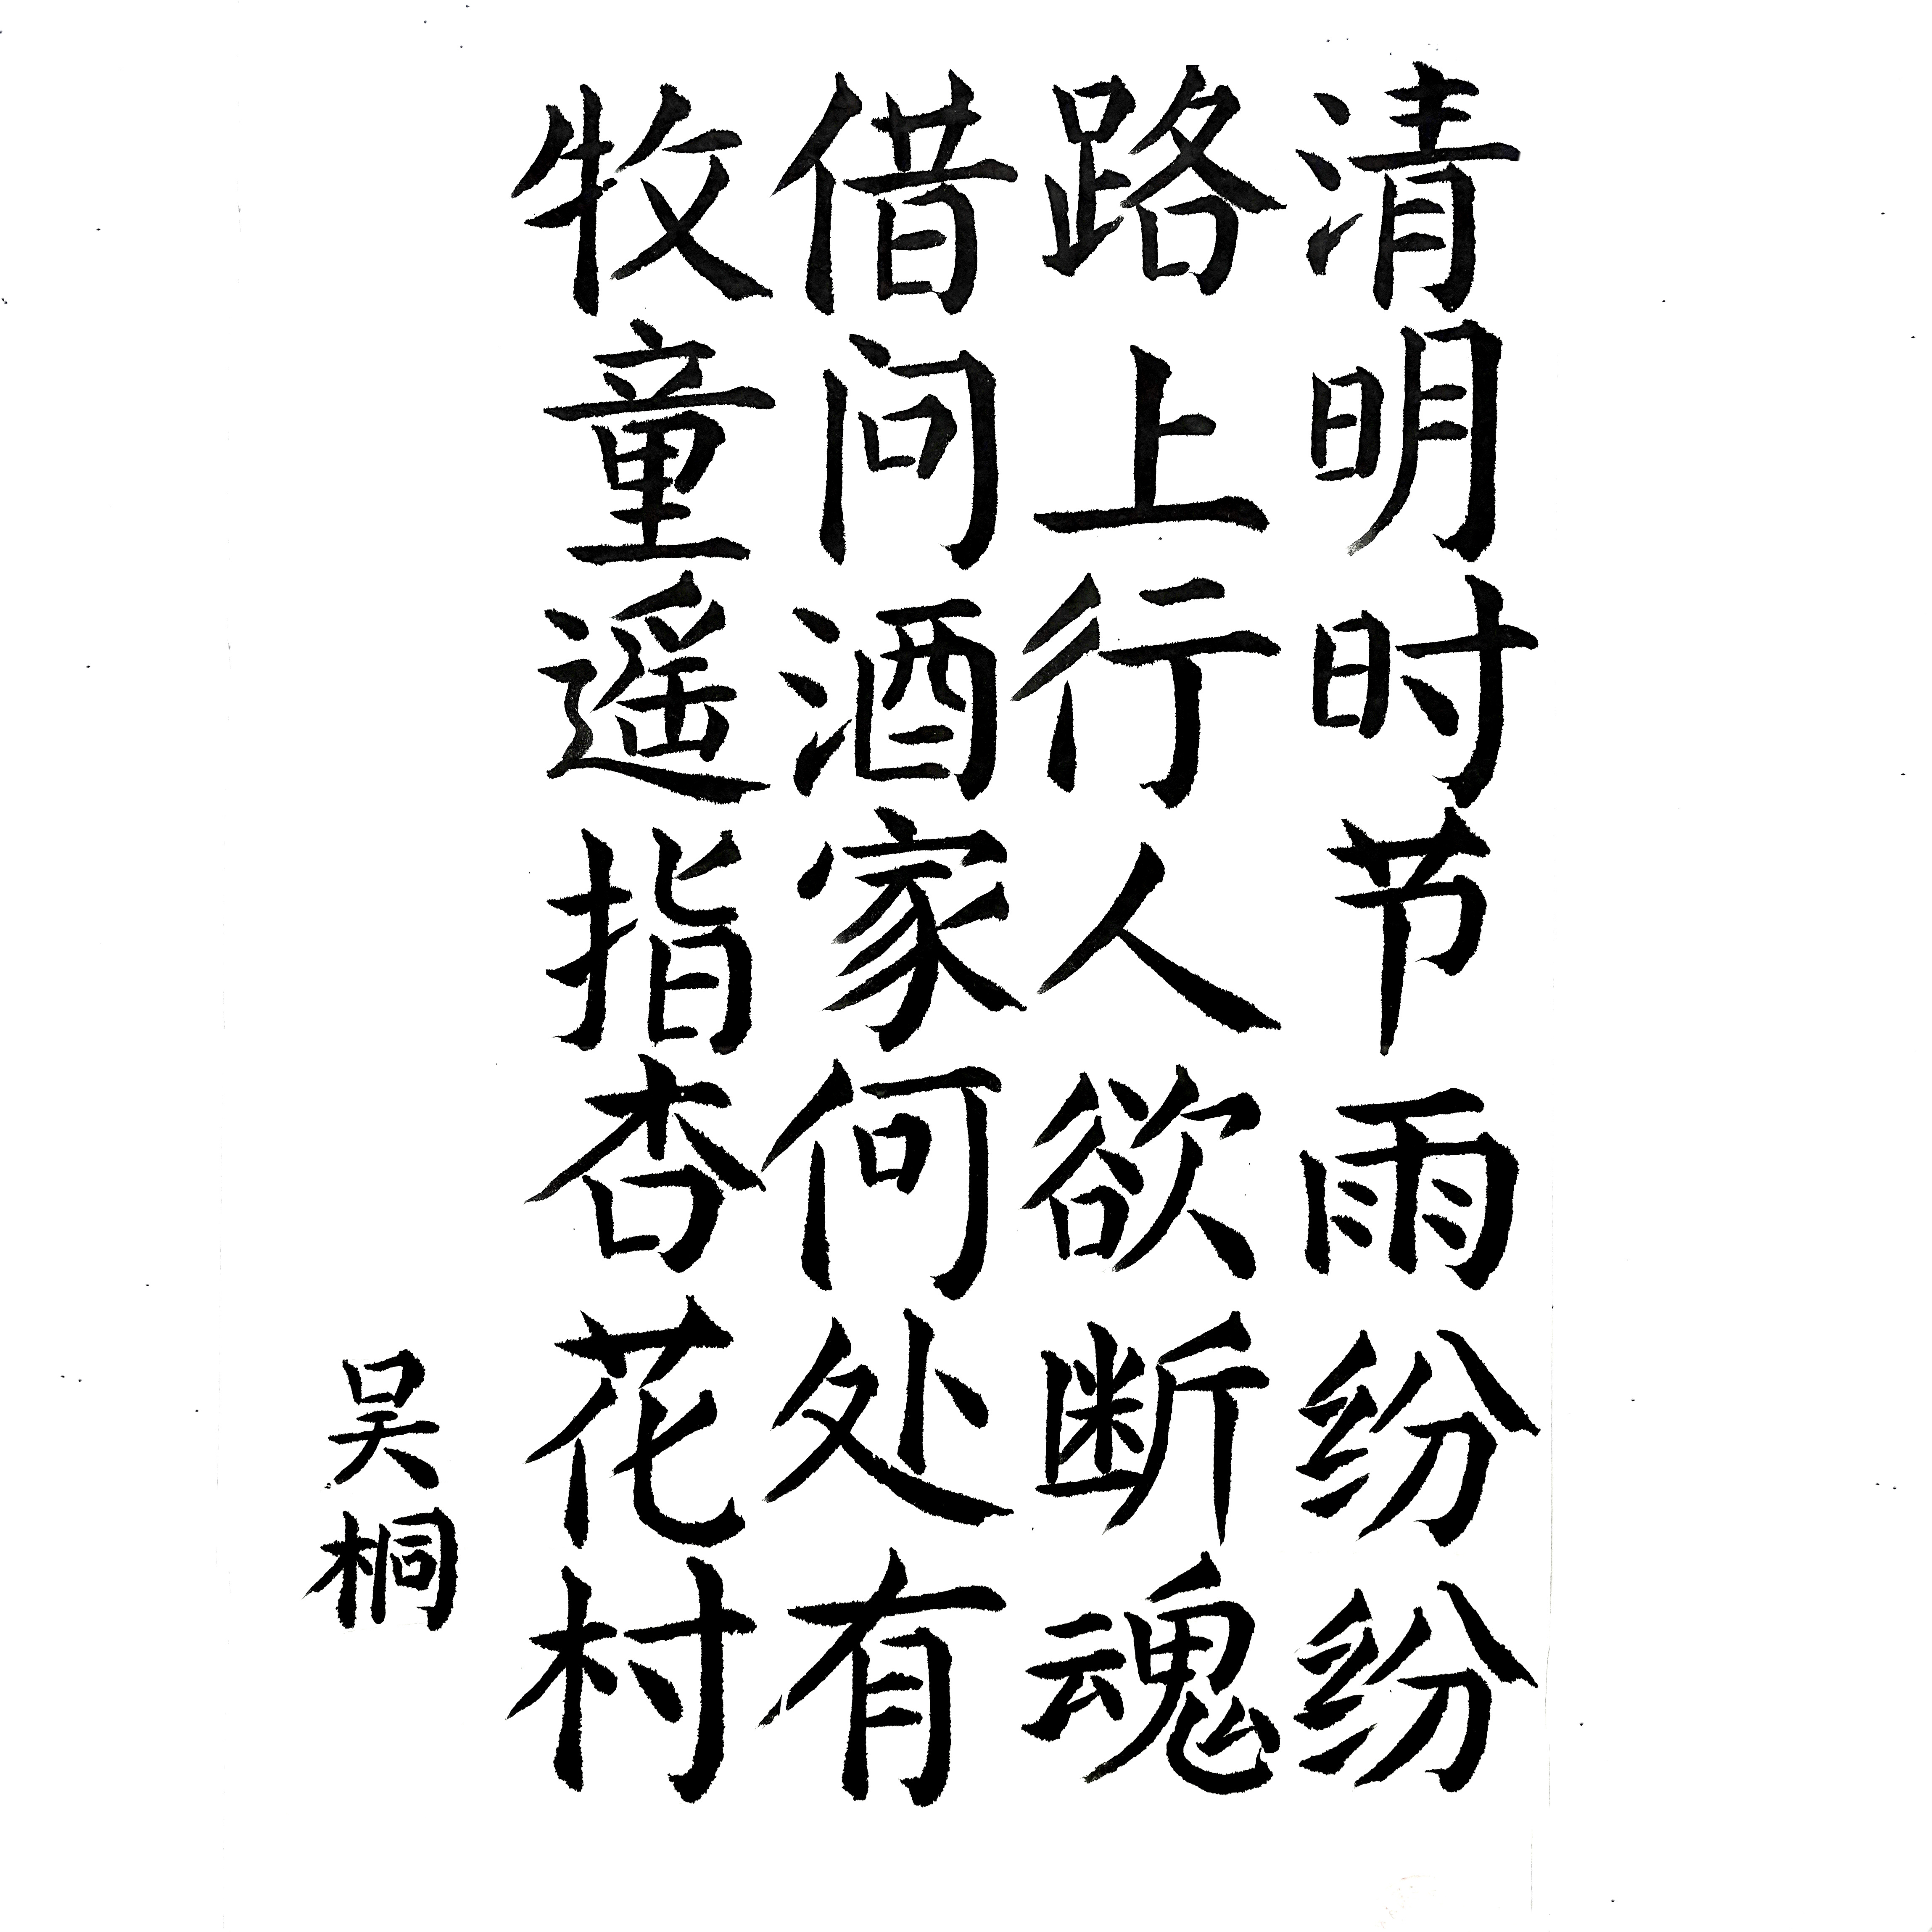 清明时节雨纷纷
路上行人欲断魂
借问酒家何处有
牧童遥指杏花村
吴桐